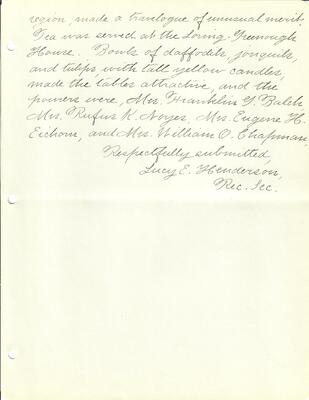 region, made a travelogue of unusual merit.
Tea was served at the Loring-Greenough
House. Bowls of daffodils, jonquils,
and tulips with tall yellow candles,
made the tables attractive, and the
pourers were, Mrs. Franklin G. Balch
Mrs. Rufus K. Noyes, Mrs. Eugene H.
Eichorn, and Mrs. William O. Chapman.
Respectfully submitted,
Lucy E. Henderson,
Rec. Sec.